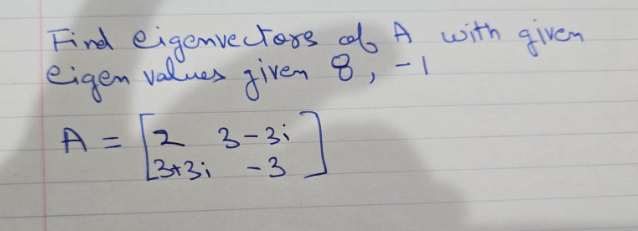 Find eigenvectors of A with given
eigen values given 8, -1
A = [2 3-3i
3+3i -3]